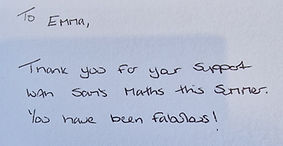 To Emma,
Thank you for your support
with Sam's Maths this Summer.
You have been fabulous!